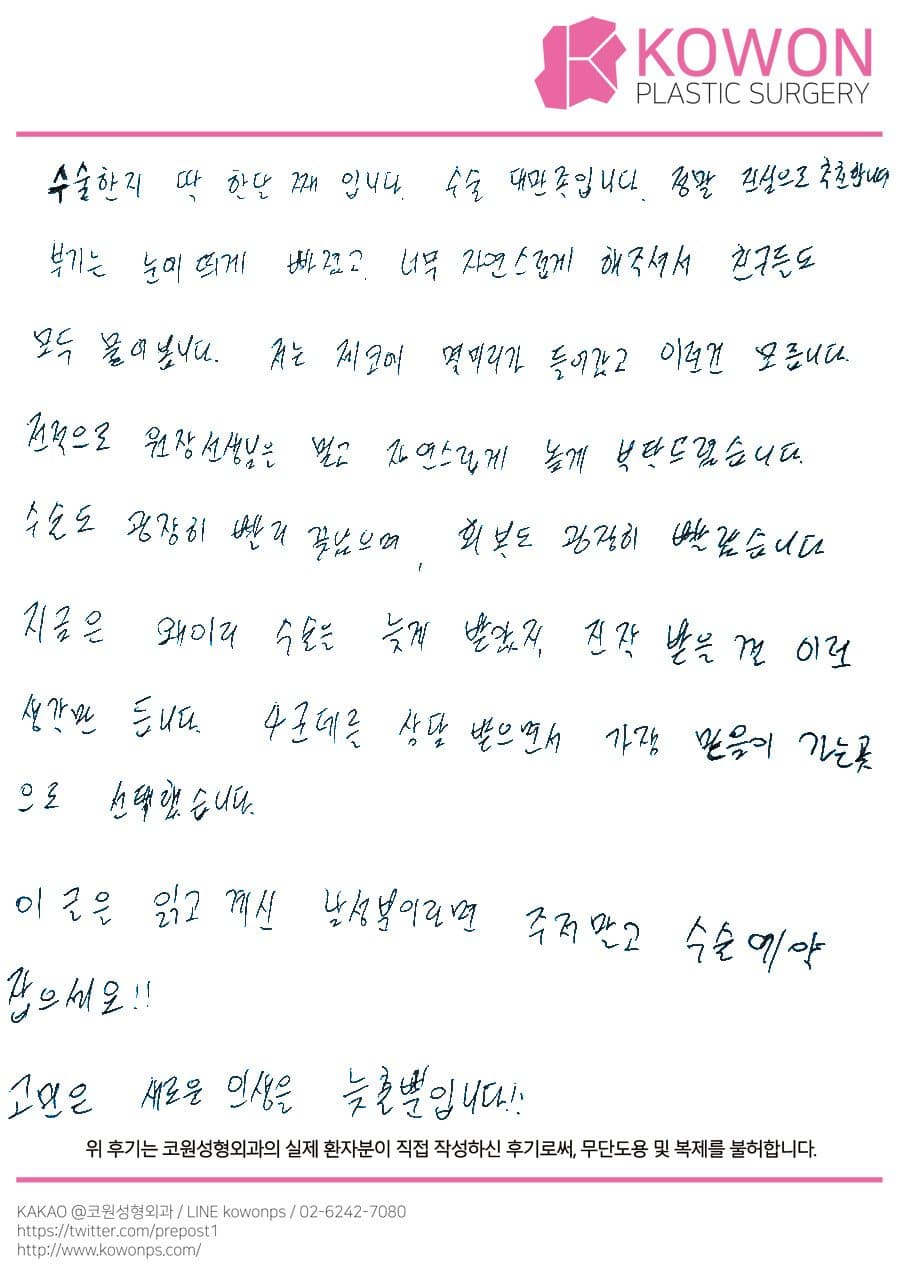 KOWON
PLASTIC SURGERY
수술한지 딱 한달 째 입니다. 수술 대만족입니다. 정말 진심으로 추천합니다
부기는 눈에 띄게 빠졌고, 너무 자연스럽게 해주셔서 친구들도
모두 물어봅니다. 저는 제코에 몇미리가 들어갔고 이런건 모릅니다.
전적으로 원장선생님은 믿고 자연스럽게 높게 부탁드렸습니다.
수술도 굉장히 빨리 끝났으며, 회복도 굉장히 빨랐습니다
지금은 왜이리 수술은 늦게 받았지, 진작 받을 껄 이런
생각만 듭니다. 4군데를 상담 받으면서 가장 믿음이 가는곳
으로 선택했습니다.
이 글은 읽고 계신 남성분이라면 주저말고 수술예약
잡으세요!!
고민은 새로운 인생은 늦출뿐입니다!!
위 후기는 코원성형외과의 실제 환자분이 직접 작성하신 후기로써, 무단도용 및 복제를 불허합니다.
KAKAO @코원성형외과 / LINE kowonps / 02-6242-7080
https://twitter.com/prepost1
http://www.kowonps.com/